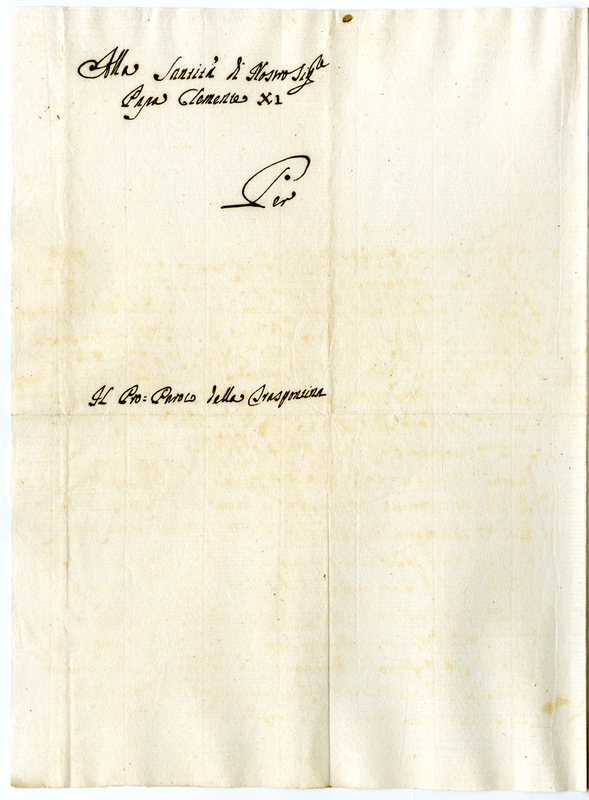 Alla Santità di Nostro Sig.re
Papa Clemente XI
Per
Il Pro=Paroco della Traspontina